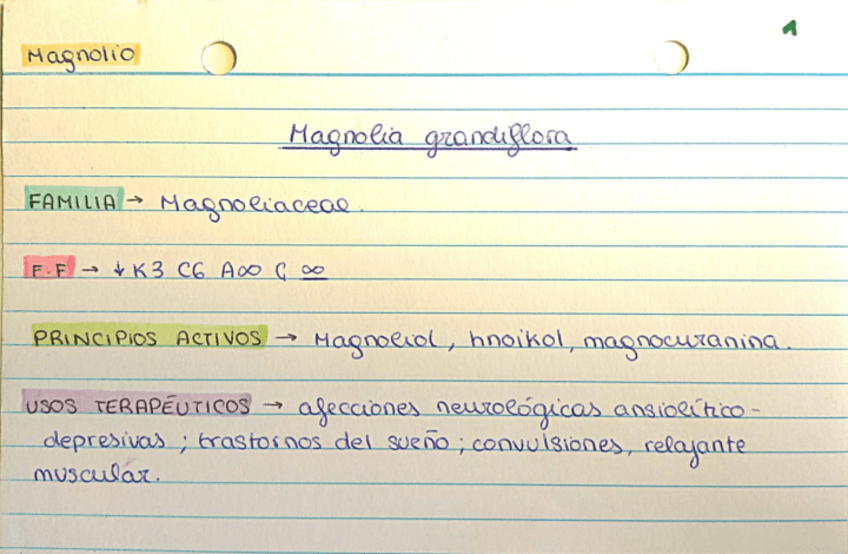 1
Magnolio
Magnolia grandiflora
FAMILIA → Magnoliaceae.
F.F → ↓ K3 C6 A∞ G ∞
PRINCIPIOS ACTIVOS → Magnoliol, hnoikol, magnocuranina.
USOS TERAPÉUTICOS → afecciones neurológicas ansiolítico-
depresivas; trastornos del sueño; convulsiones, relajante
muscular.